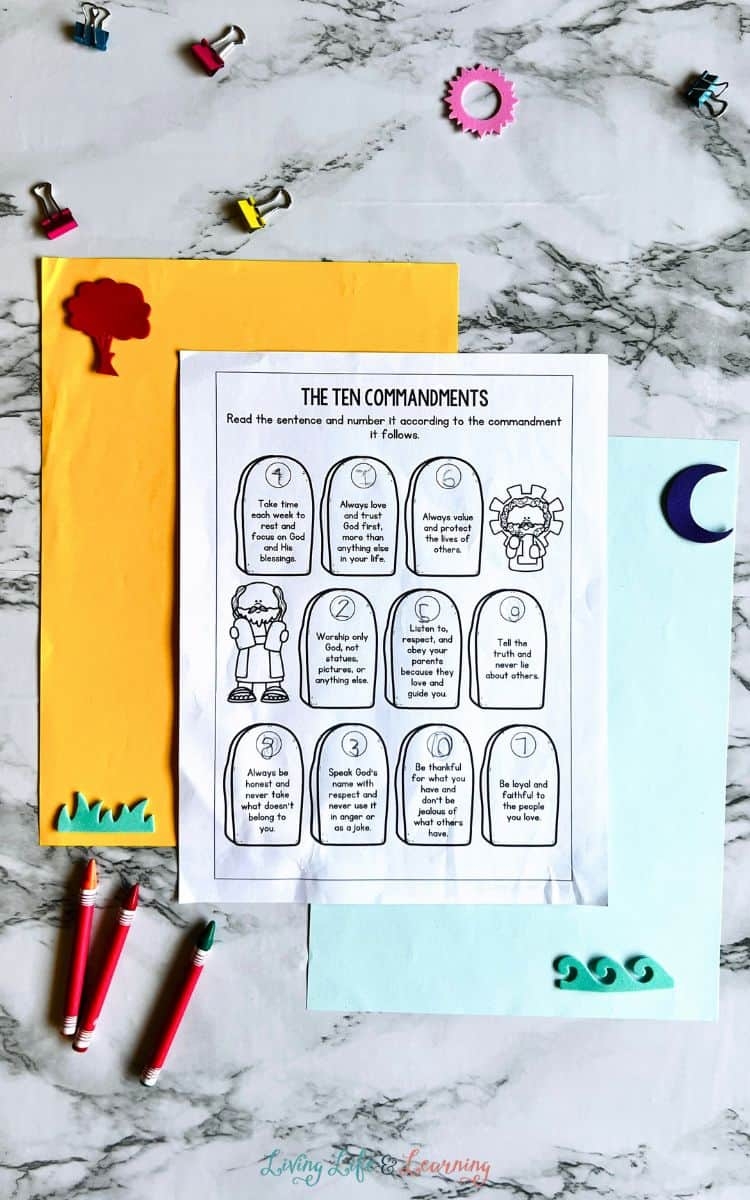 THE TEN COMMANDMENTS
Read the sentence and number it according to the commandment
it follows.
4
Take time
each week to
rest and
focus on God
and His
blessings.
1
Always love
and trust
God first,
more than
anything else
in your life.
6
Always value
and protect
the lives of
others.
2
Worship only
God, not
statues,
pictures, or
anything else.
5
Listen to,
respect, and
obey your
parents
because they
love and
guide you.
9
Tell the
truth and
never lie
about others.
8
Always be
honest and
never take
what doesn't
belong to
you.
3
Speak God's
name with
respect and
never use it
in anger or
as a joke.
10
Be thankful
for what you
have and
don't be
jealous of
what others
have.
7
Be loyal and
faithful to
the people
you love.
Living Life & Learning